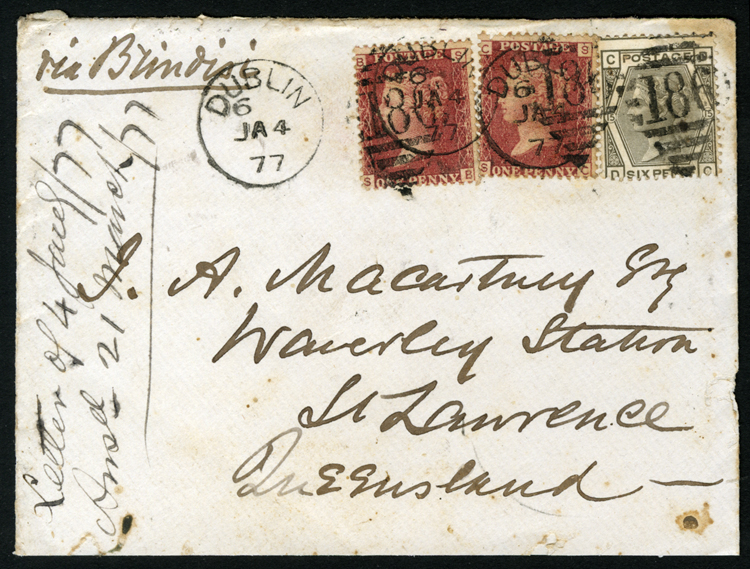 via Brindisi
DUBLIN
6
JA 4
77
B POSTAGE S
DUBLIN
6
JA 4
77
186
S ONE PENNY B
C POSTAGE S
DUBLIN
6
JA 4
77
186
S ONE PENNY C
C POSTAGE D
186
D SIX PENCE C
J. A. Macartney Esq
Waverley Station
St Lawrence
Queensland
Letter of 4 Jany/77
Ansd 21 March/77